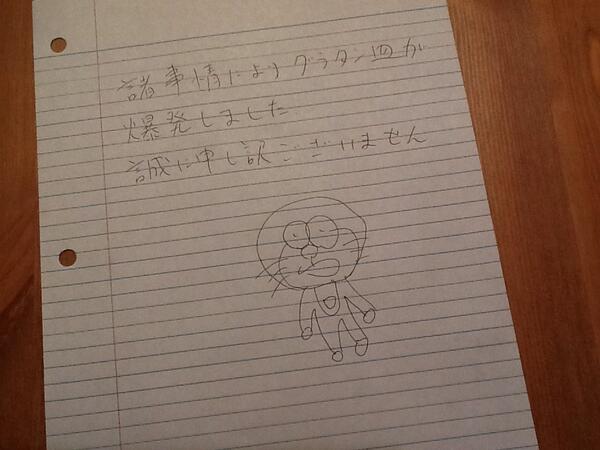 諸事情によりグラタン皿が
爆発しました
誠に申し訳ございません